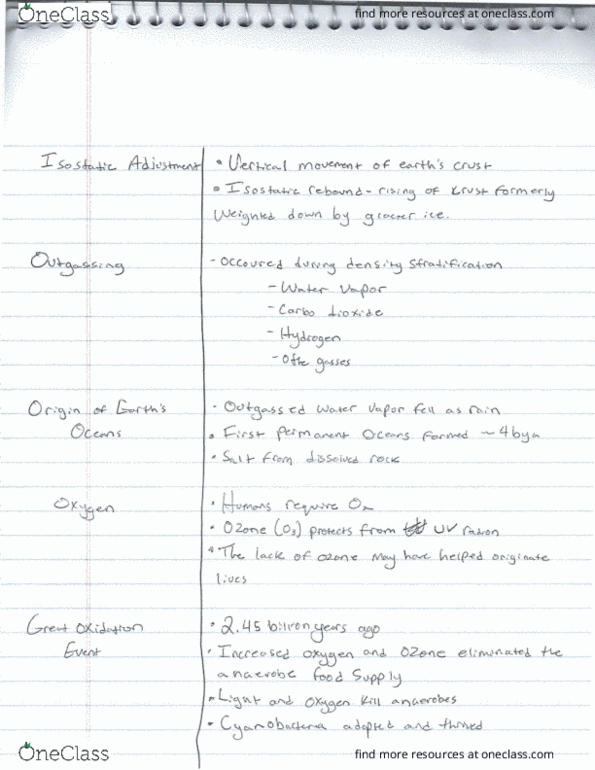 OneClass
find more resources at oneclass.com
Isostatic Adjustment
• Vertical movement of earth's crust
• Isostatic rebound - rising of crust formerly
weighted down by glacier ice.
Outgassing
- Occoured during density stratification
- Water Vapor
- Carbo dioxide
- Hydrogen
- Othe gasses
Origin of Earth's
Oceans
• Outgassed water vapor fell as rain
• First permanent oceans formed ~ 4 bya
• Salt from dissolved rock
Oxygen
• Humans require O₂
• Ozone (O₃) protects from UV
• The lack of ozone may have helped originate
lives
Great oxidation
Event
• 2.45 billion years ago
• Increased oxygen and Ozone eliminated the
anaerobe food supply
• Light and oxygen kill anaerobes
• Cyanobacteria adapted and thrived
OneClass
find more resources at oneclass.com